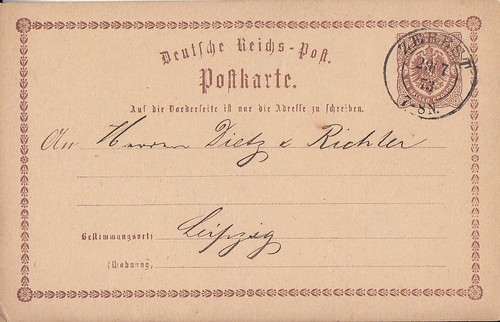 Deutsche Reichs-Post.
Postkarte.
ZERBST
29 7
73
7-8N.
Auf die Vorderseite ist nur die Adresse zu schreiben.
An Herren Dietz & Richter
Bestimmungsort:
Leipzig
(Wohnung)